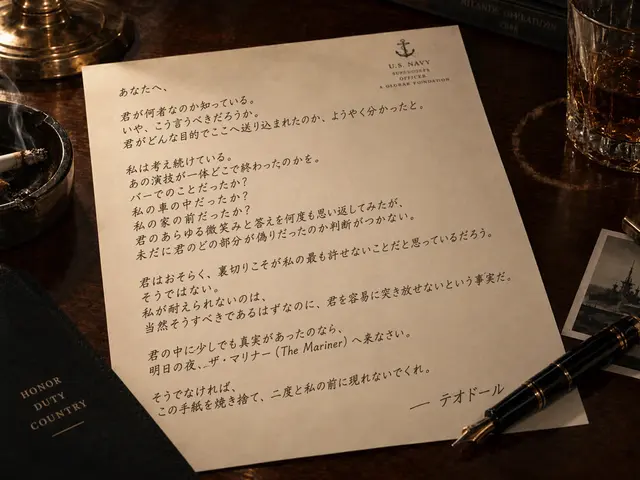 U.S. NAVY
OFFICER
あなたへ、
君が何者なのか知っている。
いや、こう言うべきだろうか。
君がどんな目的でここへ送り込まれたのか、ようやく分かったと。
私は考え続けている。
あの演技が一体どこで終わったのかを。
バーでのことだったか？
私の車の中だったか？
私の家の前だったか？
君のあらゆる微笑みと答えを何度も思い返してみたが、
未だに君のどの部分が偽りだったのか判断がつかない。
君はおそらく、裏切りこそが私の最も許せないことだと思っているだろう。
そうではない。
私が耐えられないのは、
当然そうすべきであるはずなのに、君を容易に突き放せないという事実だ。
君の中に少しでも真実があったのなら、
明日の夜、ザ・マリナー (The Mariner) へ来なさい。
そうでなければ、
この手紙を焼き捨て、二度と私の前に現れないでくれ。
— テオドール
HONOR
DUTY
COUNTRY